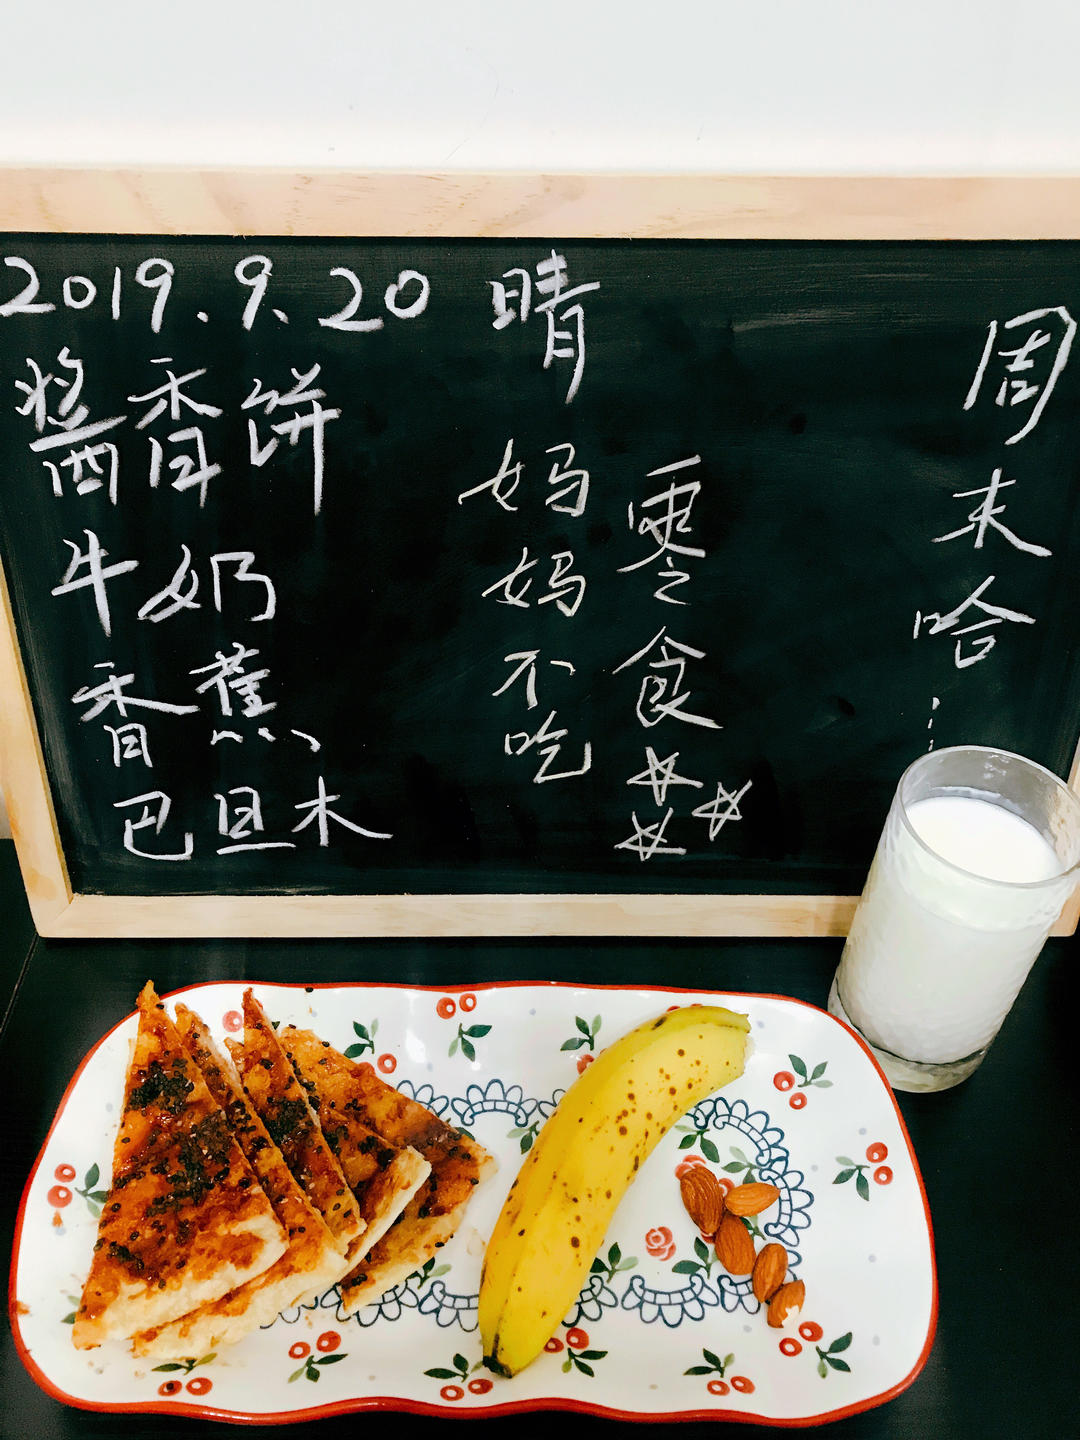 2019.9.20 晴
酱香饼
牛奶
香蕉
巴旦木
妈妈不吃
零食☆☆☆
周末哈……